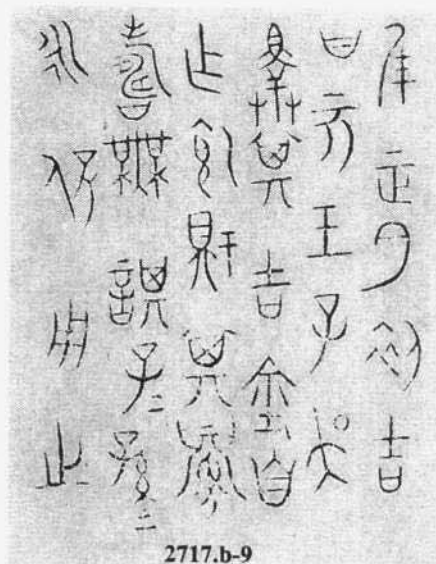 隹正月初吉
丁亥王子吳
擇其吉金自
乍飤鼾其眉
壽無諆子=孫=
永保用之
2717.b-9